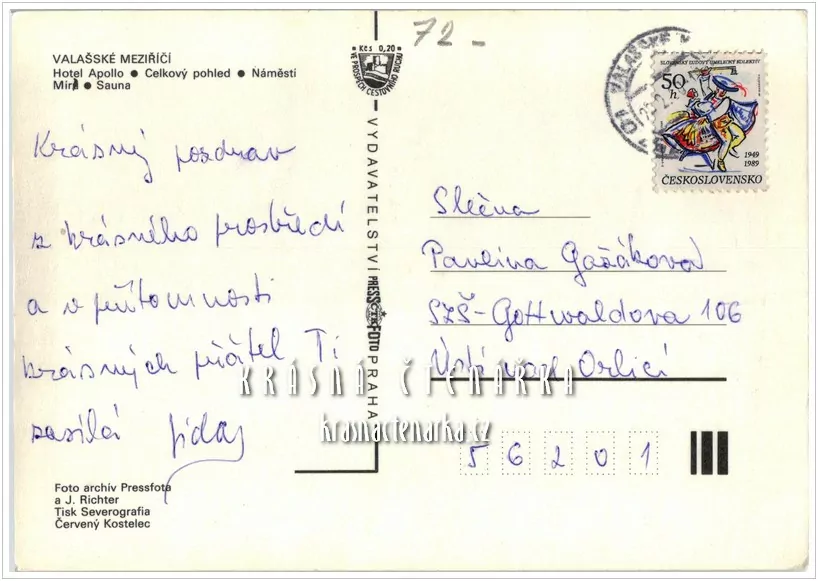 72-
VALAŠSKÉ MEZIŘÍČÍ
Hotel Apollo ● Celkový pohled ● Náměstí
Míru ● Sauna
Krásný pozdrav
z krásného prostředí
a v přítomnosti
krásných přátel Ti
zasílá
Foto archív Pressfota
a J. Richter
Tisk Severografia
Červený Kostelec
Kčs 0,20
VE PROSPĚCH CESTOVNÍHO RUCHU
VYDAVATELSTVÍ PRESSFOTO PRAHA
ČTK
VALAŠSKÉ
SLOVENSKÝ ĽUDOVÝ UMELECKÝ KOLEKTÍV
50 h
1949
1989
ČESKOSLOVENSKO
Slečna
Pavlína Gažáková
SZŠ-Gottwaldova 106
Ústí nad Orlicí
56201
KRÁSNÁ ČTENÁŘKA
krasnactenarka.cz